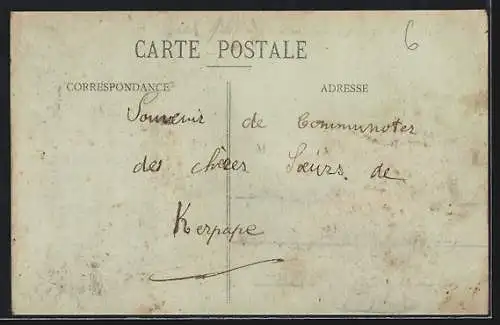 6
CARTE POSTALE
CORRESPONDANCE ADRESSE
Souvenir de Communoter
des chères Sœurs. de
Kerpape